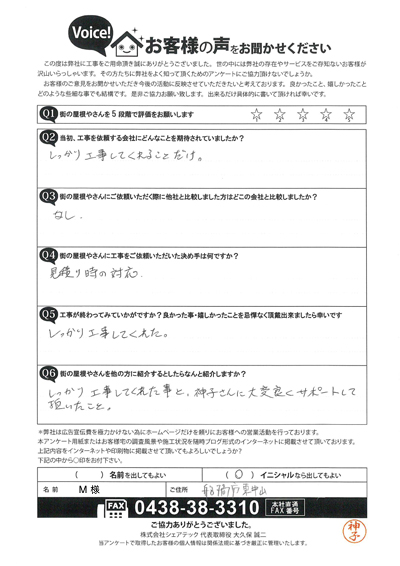 Voice!
お客様の声をお聞かせください
この度は弊社に工事をご用命頂き誠にありがとうございました。世の中には弊社の存在やサービスをご存知ないお客様が
沢山いらっしゃいます。その方たちに弊社をよく知って頂くためのアンケートにご協力頂けないでしょうか。
お客様のご意見をお聞かせいただき今後の活動に反映させていただきたいと考えております。良かったこと、嬉しかったこと
どのような些細な事でも結構です。是非ご協力お願い致します。出来るだけ具体的に書いて頂ければ幸いです。
Q1 街の屋根やさんを5段階で評価をお願いします ☆1 ☆2 ☆3 ☆4 ☆5
Q2 当初、工事を依頼する会社にどんなことを期待されていましたか?
しっかり工事してくれることだけ。
Q3 街の屋根やさんにご依頼いただく際に他社と比較しました方はどこの会社と比較しましたか?
なし.
Q4 街の屋根やさんに工事をご依頼いただいた決め手は何ですか?
見積り時の対応.
Q5 工事が終わってみていかがですか?良かった事・嬉しかったことを忌憚なく頂戴出来ましたら幸いです
しっかり工事してくれた。
Q6 街の屋根やさんを他の方に紹介するとしたらなんと紹介しますか?
しっかり工事してくれた事と、神子さんに大変良くサポートして
頂いたこと。
※弊社は広告宣伝費を極力かけない為にホームページだけを頼りにお客様への営業活動を行っております。
本アンケート用紙またはお客様宅の調査風景や施工状況を随時ブログ形式のインターネットに掲載させて頂いております。
上記内容をインターネットや印刷物に掲載させて頂いてもよろしいでしょうか?
下記の中から○印をお付下さい。
( ) 名前を出してもよい ( ○ ) イニシャルなら出してもよい
名前 M様 ご住所 船橋市東中山
FAX 0438-38-3310 本社直通 FAX番号
ご協力ありがとうございました。
株式会社シェアテック 代表取締役 大久保 誠二
当アンケートで取得したお客様の個人情報は関係法規に基づき厳正に管理いたします。
神子